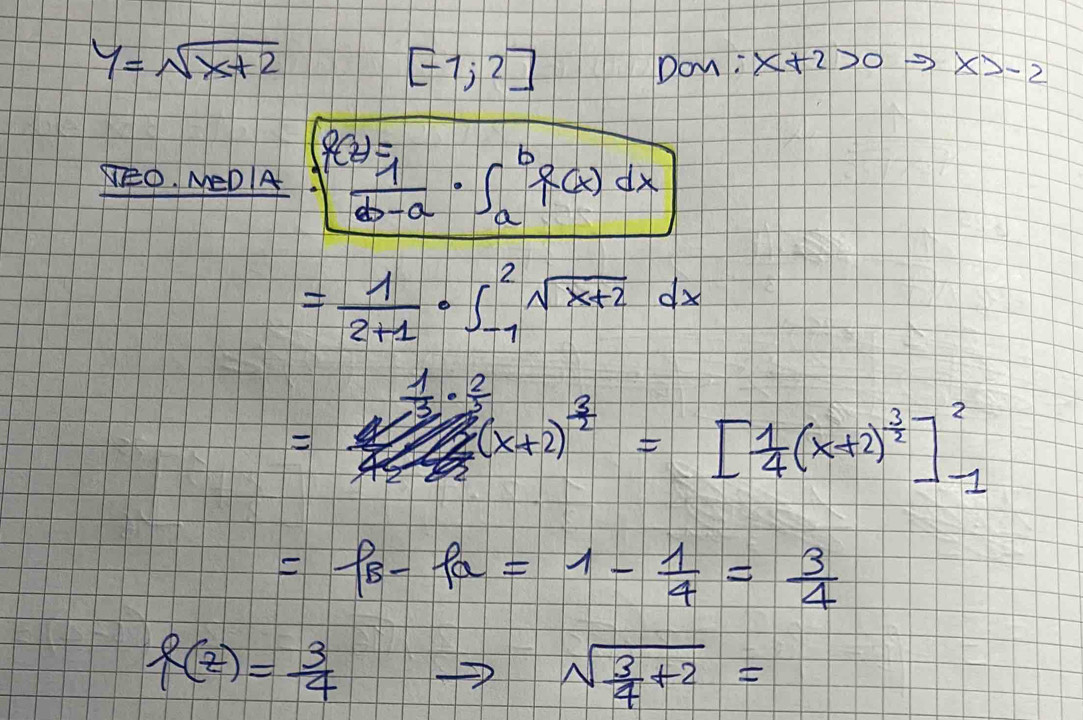 Y = √(x+2) [-1; 2] Dom: x+2>0 ⇒ x>-2
TEO. MEDIA: f(z) = 1/(b-a) · ∫_a^b f(x) dx
= 1/(2+1) · ∫_-1^2 √(x+2) dx
= 1/3 · 2/3 (x+2)^(3/2) = [1/4 (x+2)^(3/2)]_-1^2
= fB - fa = 1 - 1/4 = 3/4
f(z) = 3/4 → √(3/4 + 2) =